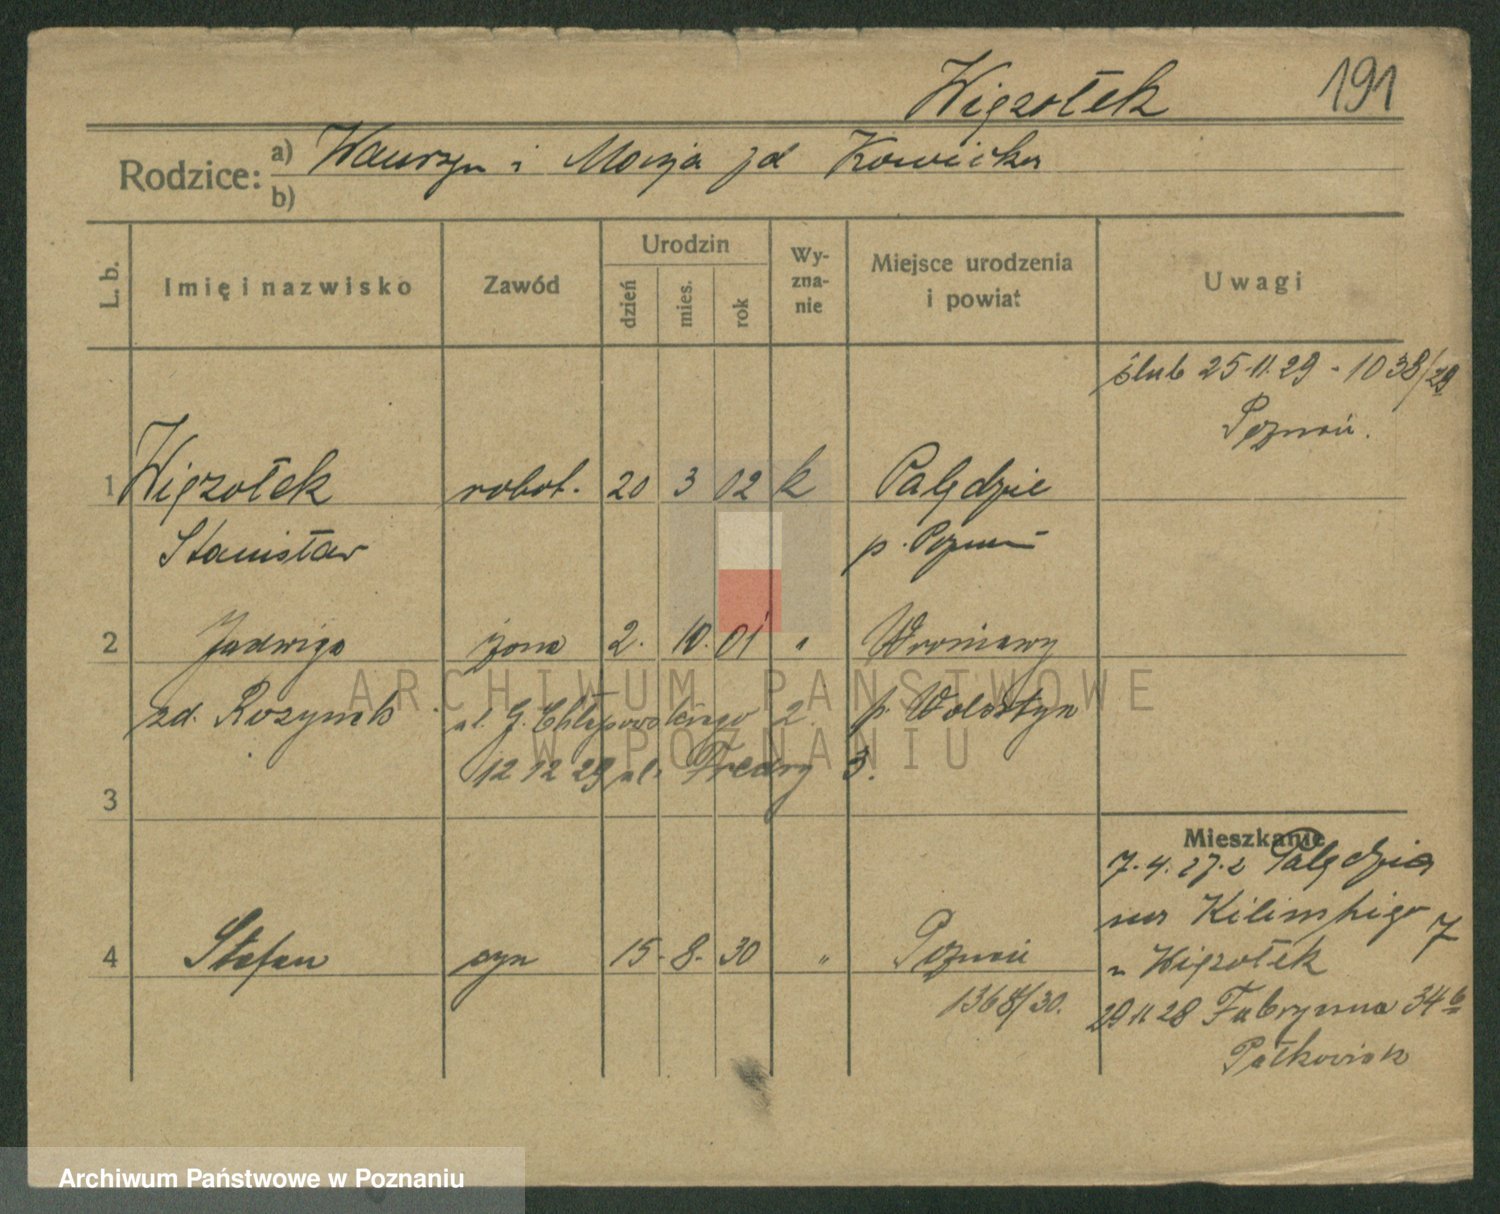 Więzołek 191
Rodzice: a) Wawrzyn i Marja zd Nowicka
b)
L. b. Imię i nazwisko Zawód Urodzin dzień mies. rok Wyznanie Miejsce urodzenia i powiat Uwagi
ślub 25.11.29 - 1038/29
Poznań.
1 Więzołek robot. 20 3 02 k Palędzie
Stanisław p. Poznań
2 Jadwiga żona 2. 10. 01 " Wroniawy
zd. Rozynek ul. G. Chłapowskiego 2. p. Wolsztyn
12 12 29 ul. Fredry 3.
3
Mieszkanie
7.4.27. z Palędzia
na Kilińskiego 7
4 Stefan syn 15. 8. 30 " Poznań
u Więzołek
1368/30.
29 11 28 Fabryczna 34
Patkowiak
ARCHIWUM PAŃSTWOWE
W POZNANIU
Archiwum Państwowe w Poznaniu